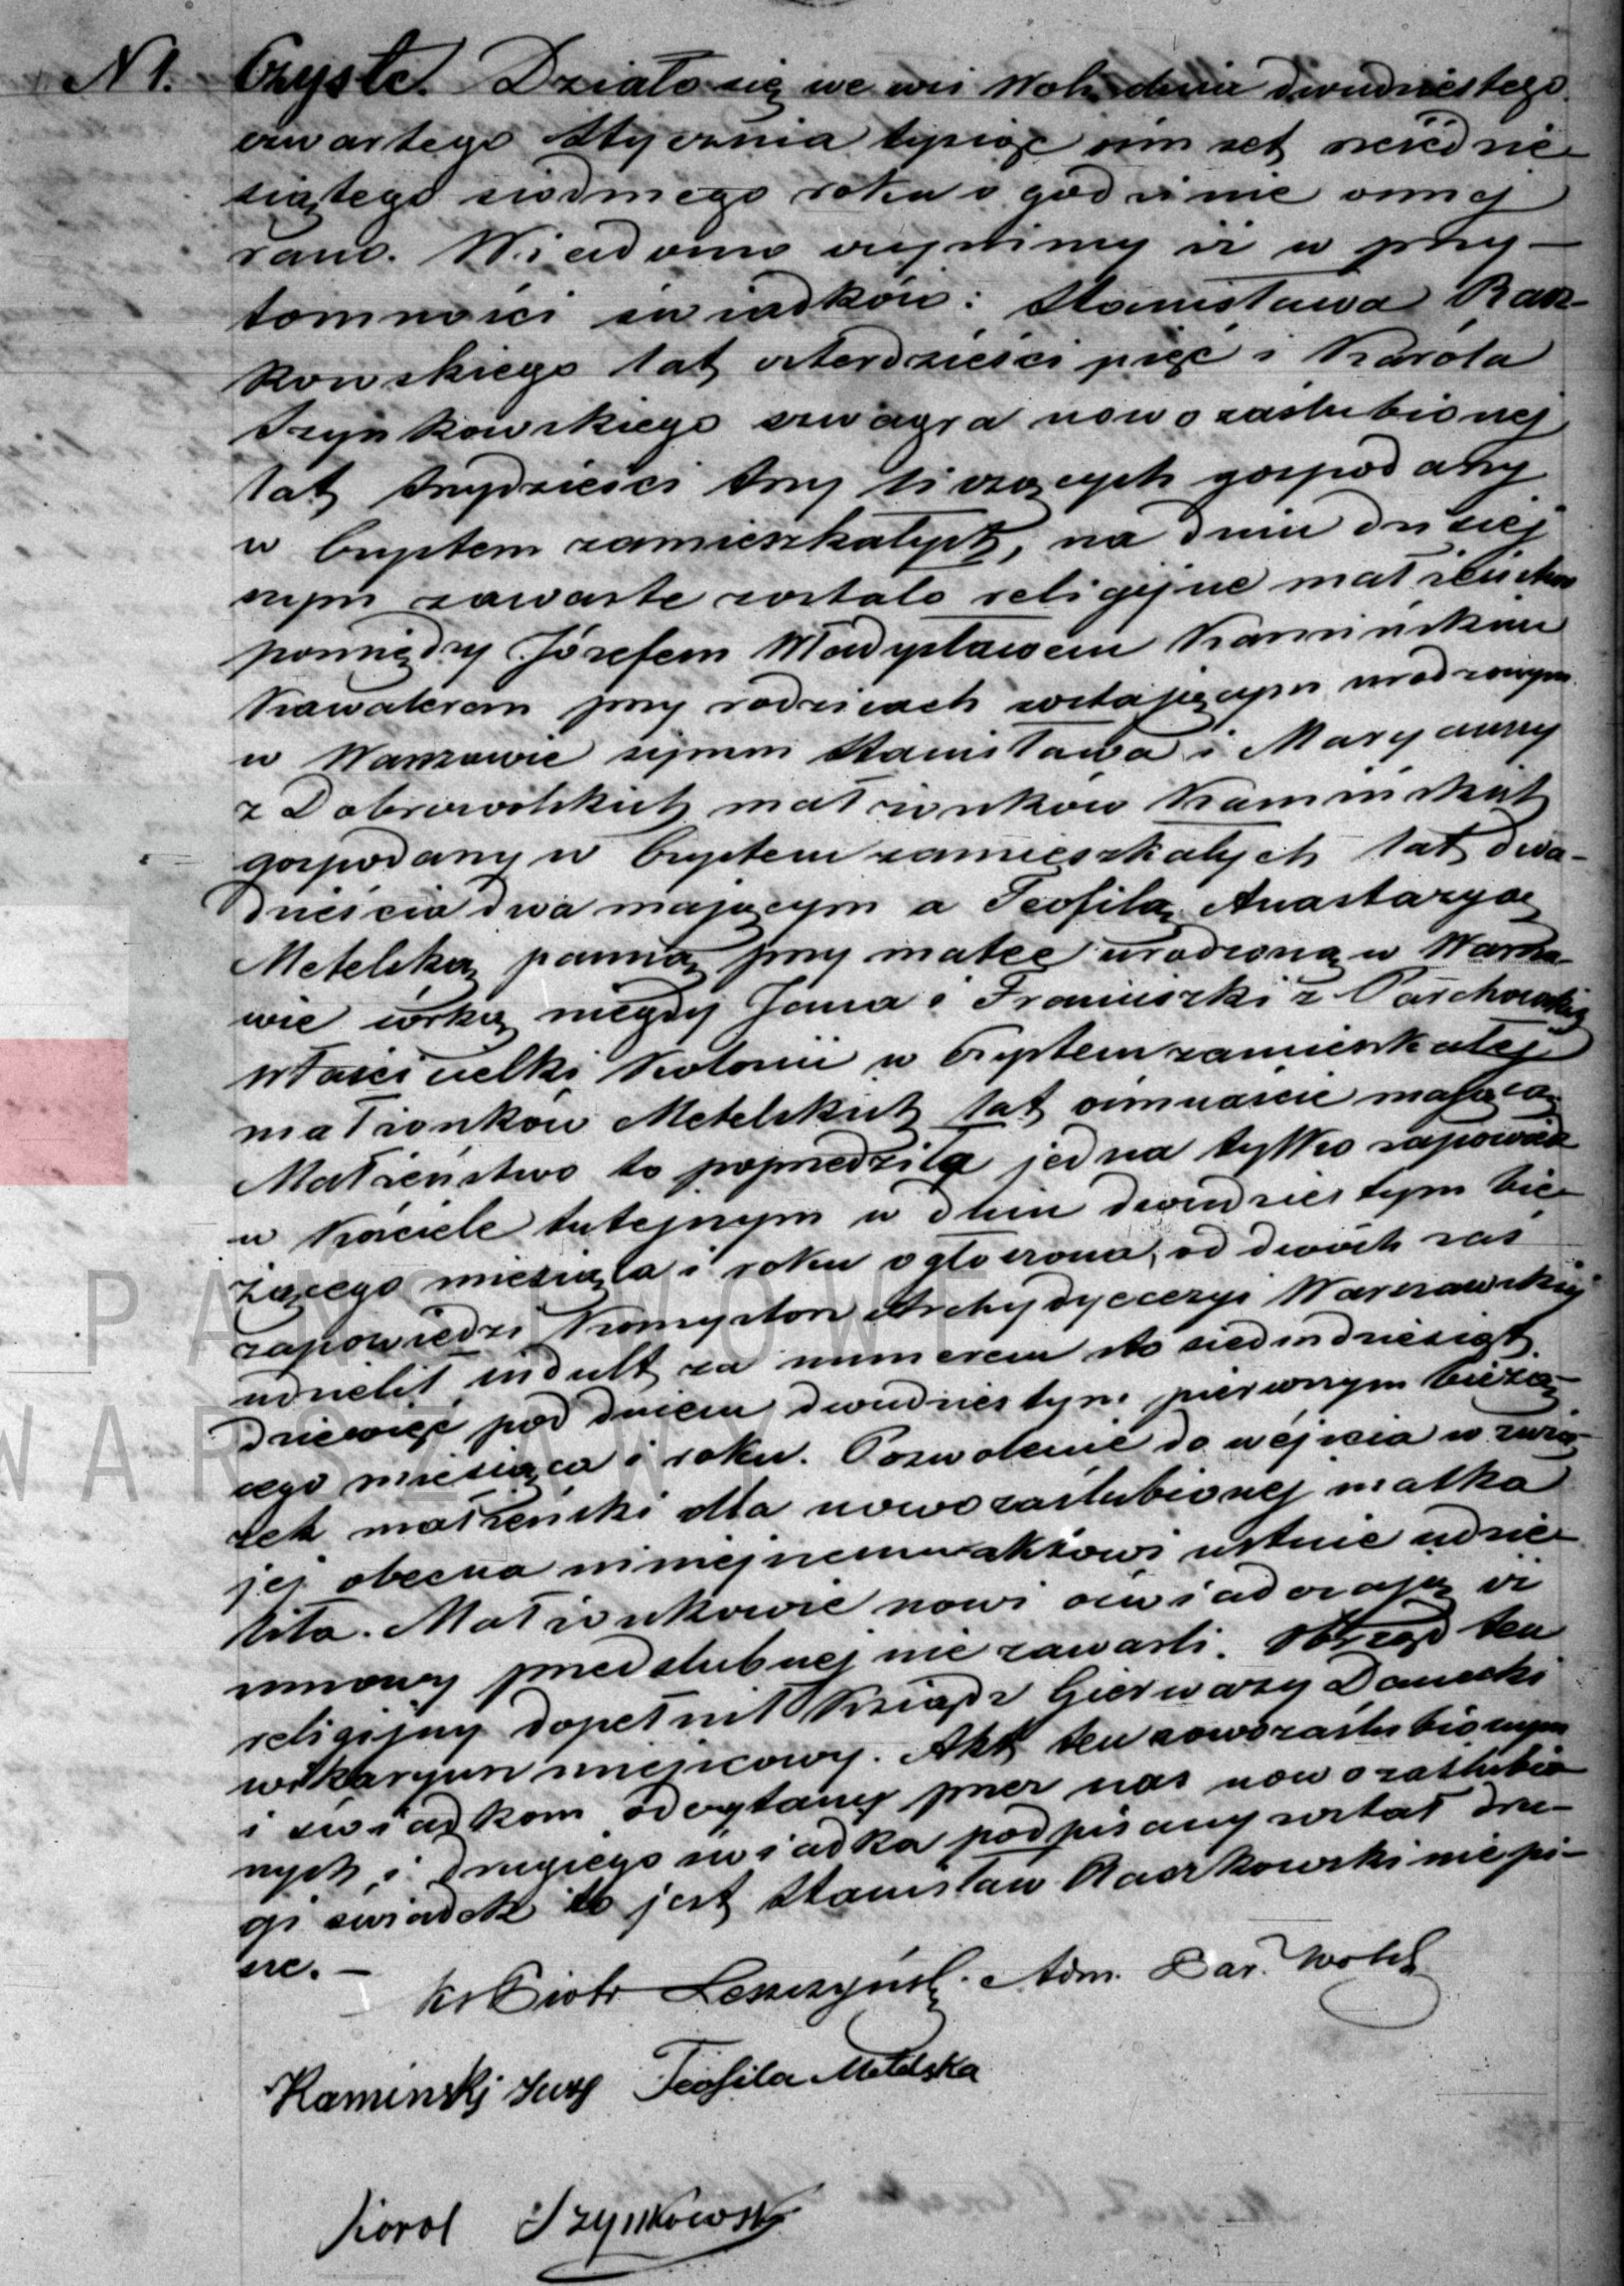 N 1. Czyste. Działo się we wsi Woli dnia dwudziestego
czwartego Stycznia tysiąc ośmset sześćdzie-
siątego siódmego roku o godzinie ósmej
rano. Wiadomo czynimy iż w przy-
tomności świadków: Stanisława Racz-
kowskiego lat czterdzieści pięć i Karola
Szynkowskiego szwagra nowozaślubionej
lat trzydzieści trzy liczących gospodarzy
w Czystem zamieszkałych, na dniu dzisiej
szym zawarte zostało religijne małżeństwo
pomiędzy Józefem Władysławem Kamińskim
Kawalerem przy rodzicach zostającym urodzonym
w Warszawie synem Stanisława i Maryanny
z Dobrowolskich małżonków Kamińskich
gospodarzy w Czystem zamieszkałych lat dwa-
dzieścia dwa mającym a Teofilą Anastazyą
Metelską panną przy matce urodzoną w Warsza-
wie córką niegdy Jana i Franciszki z Parchowskich
właścicielki Kolonii w Czystem zamieszkałej
małżonków Metelskich lat ośmnaście mającą
Małżeństwo to poprzedziła jedna tylko zapowiedź
w Kościele tutejszym w dniu dwudziestym bie-
żącego miesiąca i roku ogłoszona, od dwóch zaś
zapowiedzi Konsystorz Archydyecezyi Warszawskiej
udzielił indult za numerem sto siedmdziesiąt
dziewięć pod dniem dwudziestym pierwszym bieżą-
cego miesiąca i roku. Pozwolenie do wejścia w zwią-
zek małżeński dla nowozaślubionej matka
jej obecna niniejszemu aktowi ustnie udzie-
liła. Małżonkowie nowi oświadczają iż
umowy przedślubnej nie zawarli. Obrząd ten
religijny dopełnił Ksiądz Gierwazy Danecki
wikaryusz miejscowy. Akt ten nowozaślubionym
i świadkom odczytany przez nas nowozaślubio-
nych i drugiego świadka podpisany został dru-
gi świadek to jest Stanisław Raczkowski niepi-
sze. –
Ks Piotr Leszczyńsk. Adm. Par. Wolsk
Kaminskj Juzf Teofila Metelska
Karol Szynkowski
PAŃSTWOWE
WARSZAWY